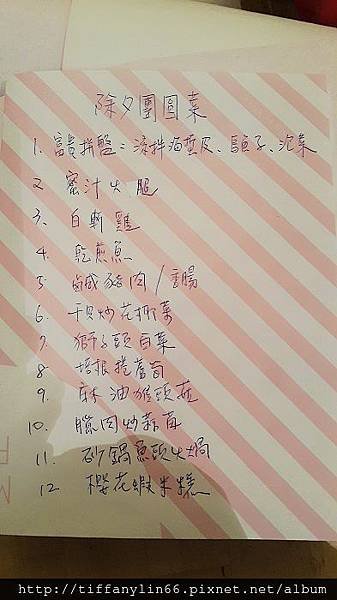 除夕團圓菜
1. 富貴拼盤：涼拌海蜇皮、烏魚子、泡菜
2. 蜜汁火腿
3. 白斬雞
4. 乾煎魚
5. 鹹豬肉/香腸
6. 干貝炒花椰菜
7. 獅子頭白菜
8. 培根捲蘆筍
9. 麻油猴頭菇
10. 臘肉炒蒜苗
11. 砂鍋魚頭火鍋
12. 櫻花蝦米糕
http://tiffanylin66.pixnet.net/album